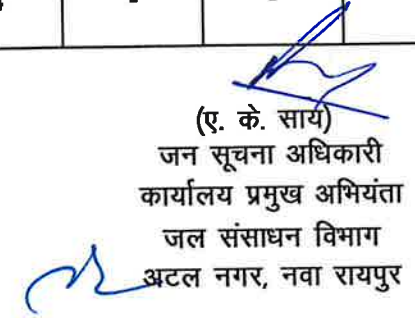 (ए. के. साय)
जन सूचना अधिकारी
कार्यालय प्रमुख अभियंता
जल संसाधन विभाग
अटल नगर, नवा रायपुर